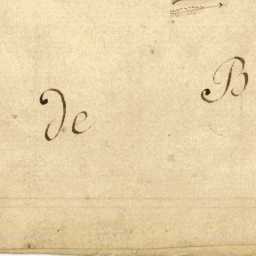 de B